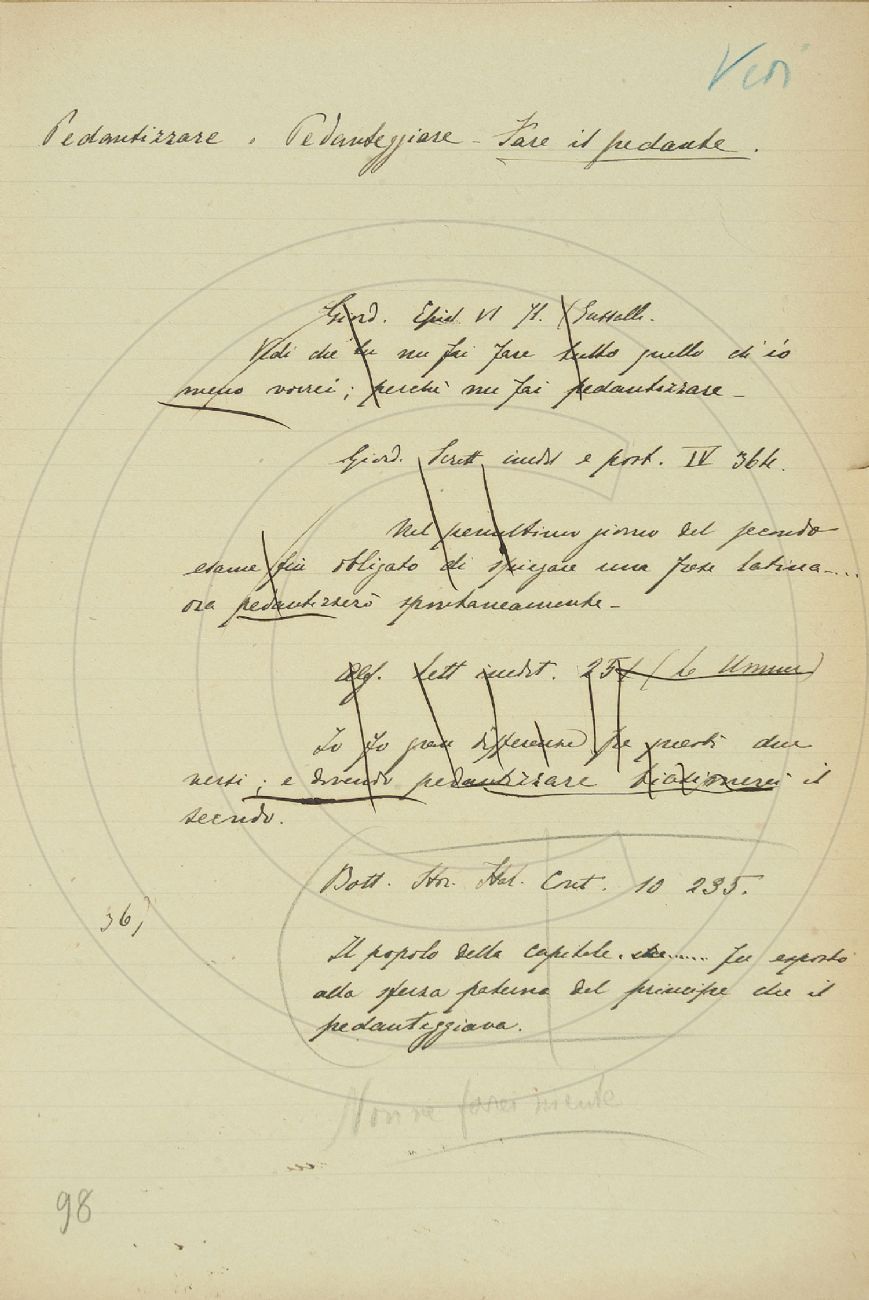 Vedi
Pedantizzare o Pedanteggiare - Fare il pedante.
Giord. Epist VI 71. (Gussalli.
Vedi che tu me fai fare tutto quello ch'io
meno vorrei; perchè me fai pedantizzare -
Giord. Scritt. inedit e post. IV 364.
Nel penultimo giorno del secondo
esame fui obligato di spiegare una frase latina....
ora pedantizzerò spontaneamente -
Lett inedit. 25 (Le Monnier)
Io fo gran differenza fra questi due
versi; e dovendo pedantizzare il
secondo.
Bott. Stor. Ital. Cont. 10 235.
36)
Il popolo della capitale. che...... fu esposto
alla sferza paterna del principe che il
pedanteggiava.
Non ne farei niente
98